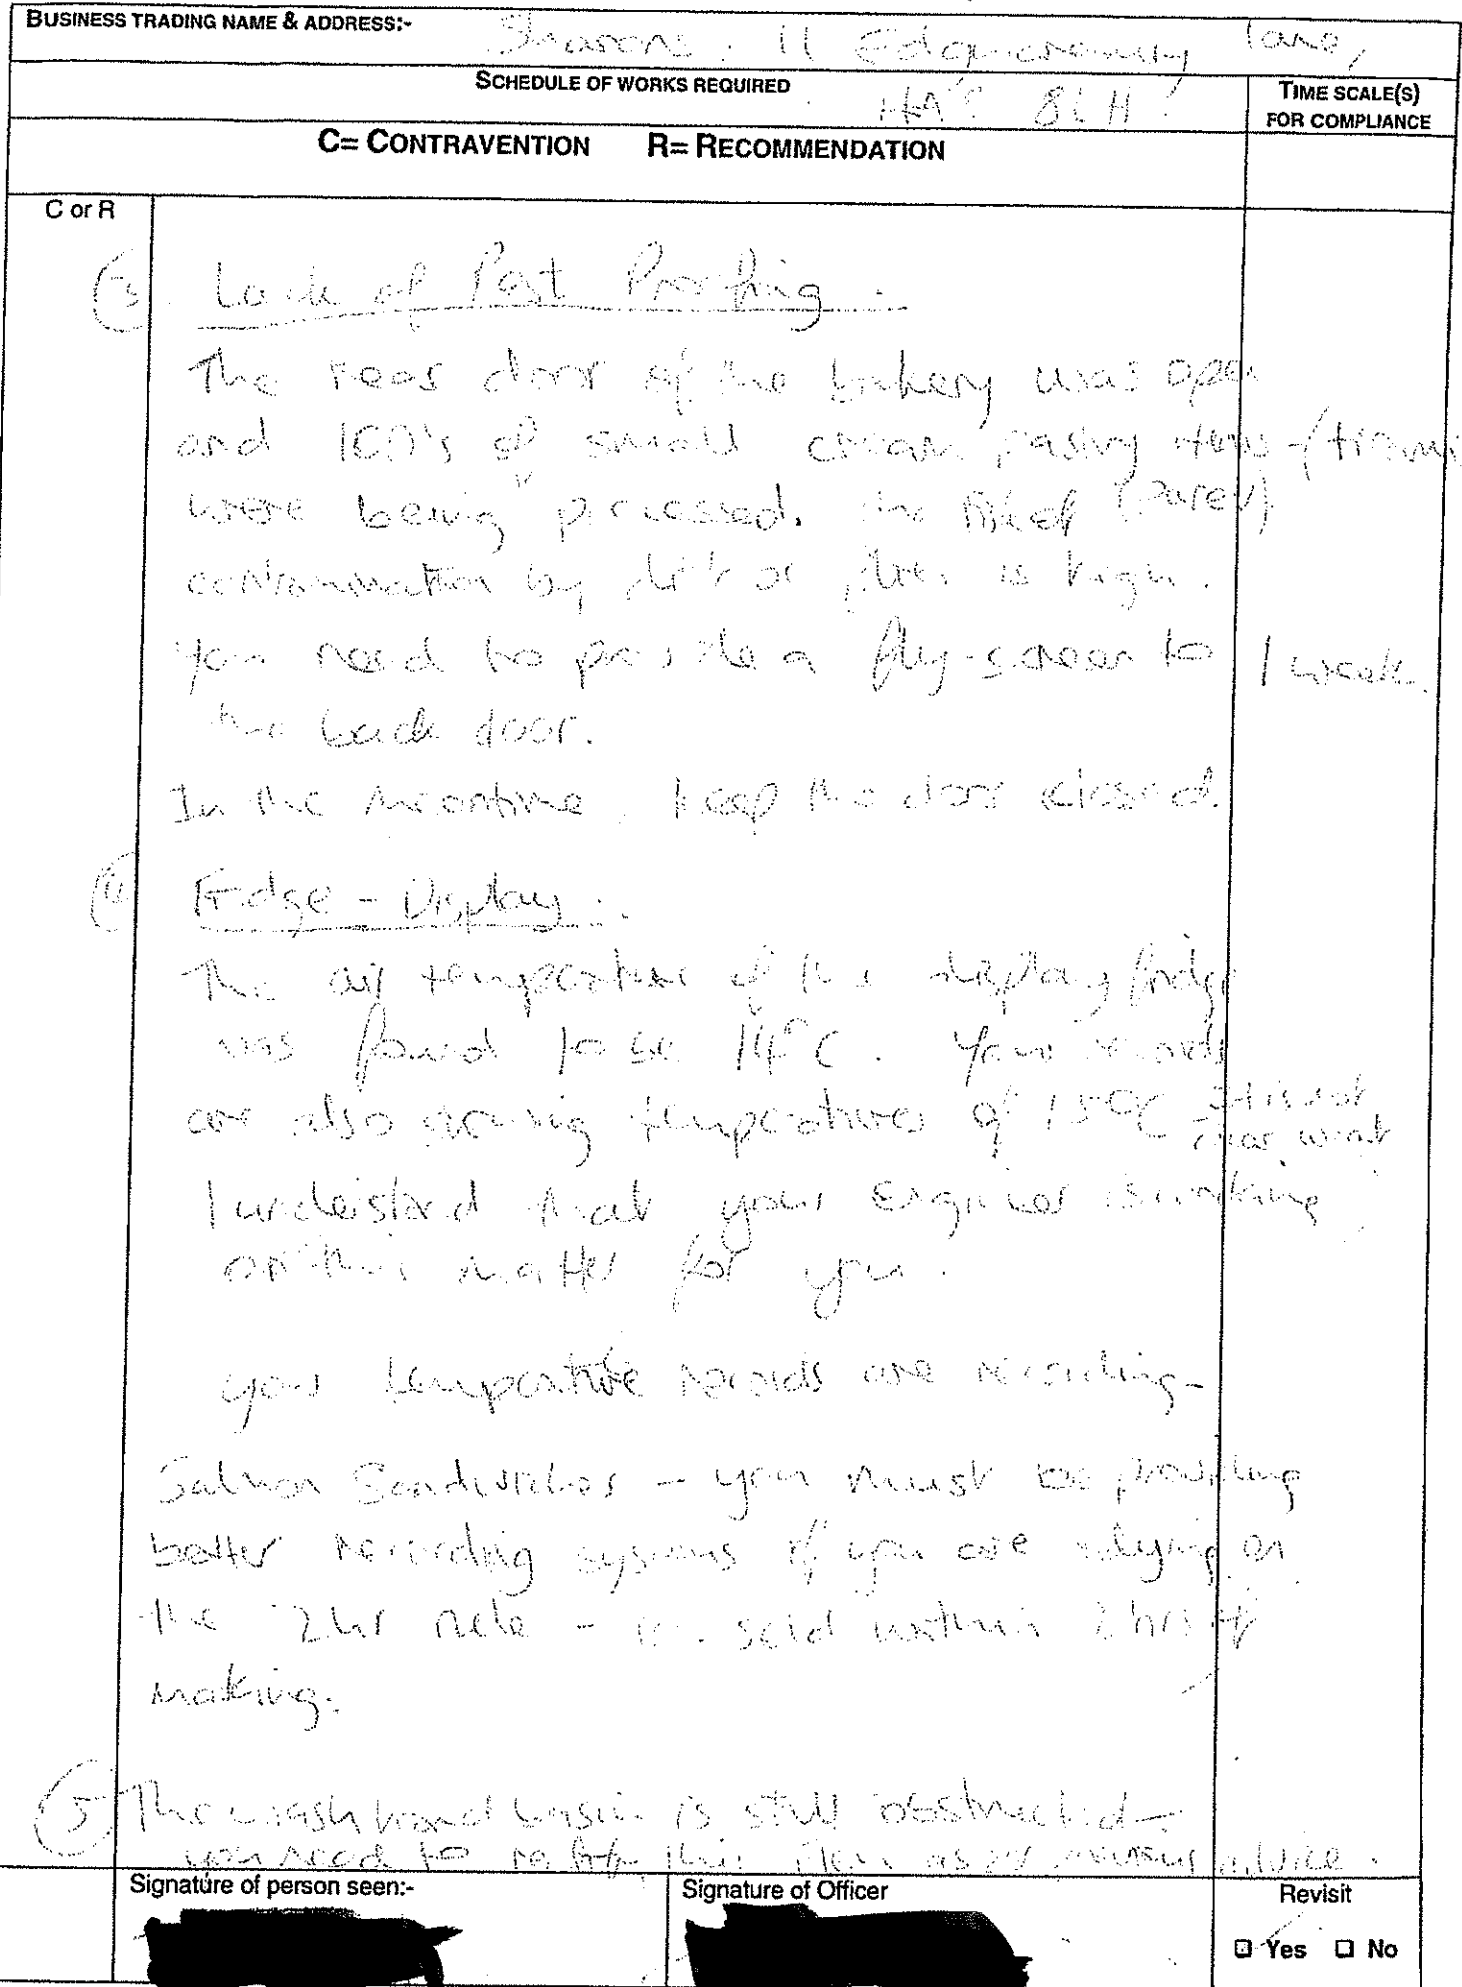 BUSINESS TRADING NAME & ADDRESS:-
Sharons. 11 Edgwarebury lane,
SCHEDULE OF WORKS REQUIRED
HA8 8LH.
TIME SCALE(S)
FOR COMPLIANCE
C= CONTRAVENTION R= RECOMMENDATION
C or R
3. Lack of Pest Proofing.
The rear door of the bakery was open
and 100's of small cream pastry items
were being processed. The risk of (Parev)
contamination by dirt or flies is high.
You need to provide a fly-screen to 1 week.
the back door.
In the meantime, keep the door closed.
4 Fridge - Display.
The air temperature of the display fridge
was found to be 14°C. Your records
are also showing temperatures of 15°C - It is not
clear what
I understand that your Engineer is working
on this matter for you.
Your temperature records are recording-
Salmon Sandwiches - you must be providing
better recording systems if you are relying on
the 2hr rule - ie. sold within 2hrs of
making.
5 The wash hand basin is still obstructed-
you need to rectify this item as previous advice.
Signature of person seen:-
Signature of Officer
Revisit
Yes No